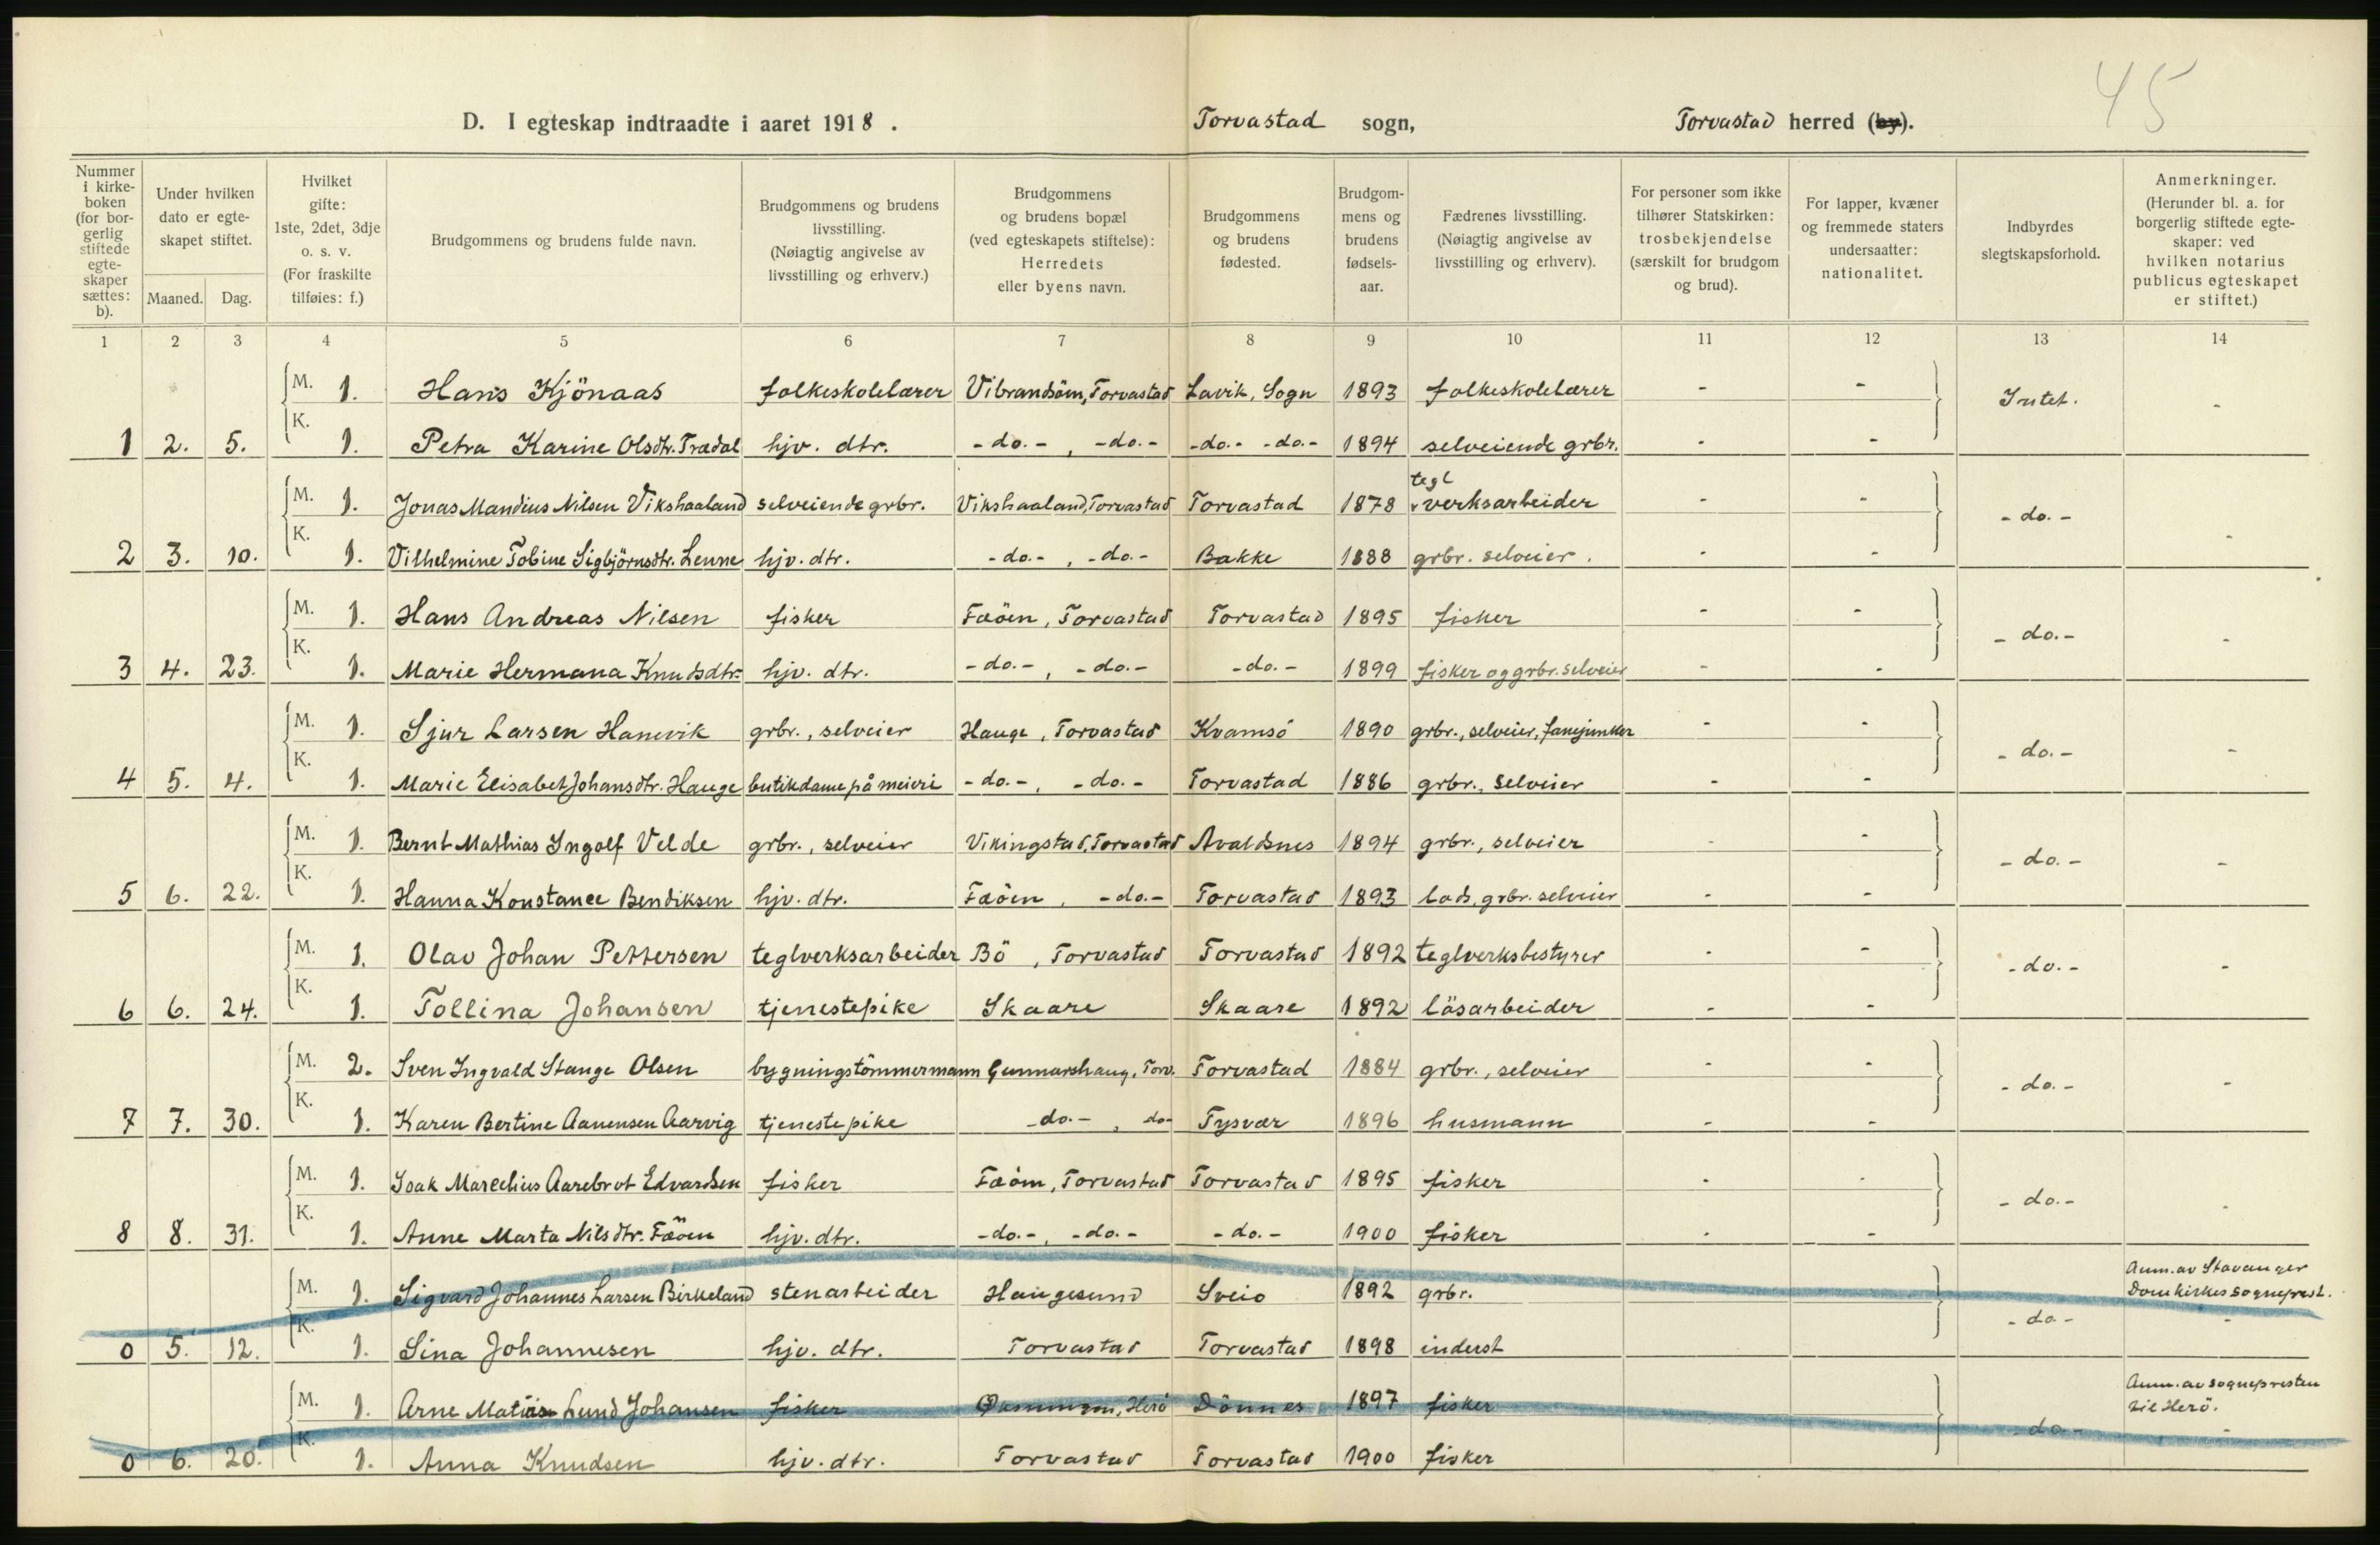 45
D. I egteskap indtraadte i aaret 1918. Torvastad sogn, Torvastad herred (by).
Nummer i kirkeboken (for borgerlig stiftede egteskaper sættes: b). Under hvilken dato er egteskapet stiftet. Maaned. Dag. Hvilket gifte: 1ste, 2det, 3dje o. s. v. (For fraskilte tilføies: f.) Brudgommens og brudens fulde navn. Brudgommens og brudens livsstilling. (Nøiagtig angivelse av livsstilling og erhverv.) Brudgommens og brudens bopæl (ved egteskapets stiftelse): Herredets eller byens navn. Brudgommens og brudens fødested. Brudgommens og brudens fødselsaar. Fædrenes livsstilling. (Nøiagtig angivelse av livsstilling og erhverv). For personer som ikke tilhører Statskirken: trosbekjendelse (særskilt for brudgom og brud). For lapper, kvæner og fremmede staters undersaatter: nationalitet. Indbyrdes slegtskapsforhold. Anmerkninger. (Herunder bl. a. for borgerlig stiftede egteskaper: ved hvilken notarius publicus egteskapet er stiftet.)
1 2 3 4 5 6 7 8 9 10 11 12 13 14
M. 1. Hans Kjönaas folkeskolelærer Vibrandsöen, Torvastad Lavik, Sogn 1893 folkeskolelærer - - Intet. -
1 2. 5. K. 1. Petra Karine Olsdtr. Trædal hjv. dtr. -do.-, -do.- -do.- -do.- 1894 selveiende grbr. - -
M. 1. Jonas Mandius Nilsen Vikshaaland selveiende grbr. Vikshaaland, Torvastad Torvastad 1878 teglverksarbeider - - -do.- -
2 3. 10. K. 1. Vilhelmine Tobine Sigbjörnsdtr. Lenne hjv. dtr. -do.-, -do.- Bakke 1888 grbr. selveier. - -
M. 1. Hans Andreas Nilsen fisker Fæöen, Torvastad Torvastad 1895 fisker - - -do.- -
3 4. 23. K. 1. Marie Hermana Knudsdtr. hjv. dtr. -do.-, -do.- -do.- 1899 fisker og grbr. selveier - -
M. 1. Sjur Larsen Hanevik grbr., selveier Hauge, Torvastad Kvamsö 1890 grbr., selveier, fanejunker - - -do.- -
4 5. 4. K. 1. Marie Elisabet Johansdtr. Hauge butikdame på meieri -do.-, -do.- Torvastad 1886 grbr., selveier - -
M. 1. Bernt Mathias Ingolf Velde grbr., selveier Vikingstad, Torvastad Avaldsnes 1894 grbr., selveier - - -do.- -
5 6. 22. K. 1. Hanna Konstance Bendiksen hjv. dtr. Fæöen, -do.- Torvastad 1893 lods, grbr. selveier - -
M. 1. Olav Johan Pettersen teglverksarbeider Bö, Torvastad Torvastad 1892 teglverksbestyrer - - -do.- -
6 6. 24. K. 1. Tollina Johansen tjenestepike Skaare Skaare 1892 lösarbeider - -
M. 2. Sven Ingvald Stange Olsen bygningstömmermann Gunnarshaug, Torv. Torvastad 1884 grbr., selveier - - -do.- -
7 7. 30. K. 1. Karen Bertine Aanensen Aarvig tjenestepike -do.-, do- Tysvær 1896 husmann - -
M. 1. Isak Marcelius Aarebrot Edvardsen fisker Fæöen, Torvastad Torvastad 1895 fisker - - -do.- -
8 8. 31. K. 1. Anne Marta Nilsdtr. Fæöen hjv. dtr. -do.-, -do.- -do.- 1900 fisker - -
M. 1. Sigvard Johannes Larsen Birkeland stenarbeider Haugesund Sveio 1892 grbr. -do- Anm. av Stavanger Domkirkes sogneprest. -
0 5. 12. K. 1. Sina Johannesen hjv. dtr. Torvastad Torvastad 1898 inderst
M. 1. Arne Matias Lund Johansen fisker Herö Dönnes 1897 fisker -do- Anm. av sognepresten til Herö. -
0 6. 20. K. 1. Anna Knudsen hjv. dtr. Torvastad Torvastad 1900 fisker